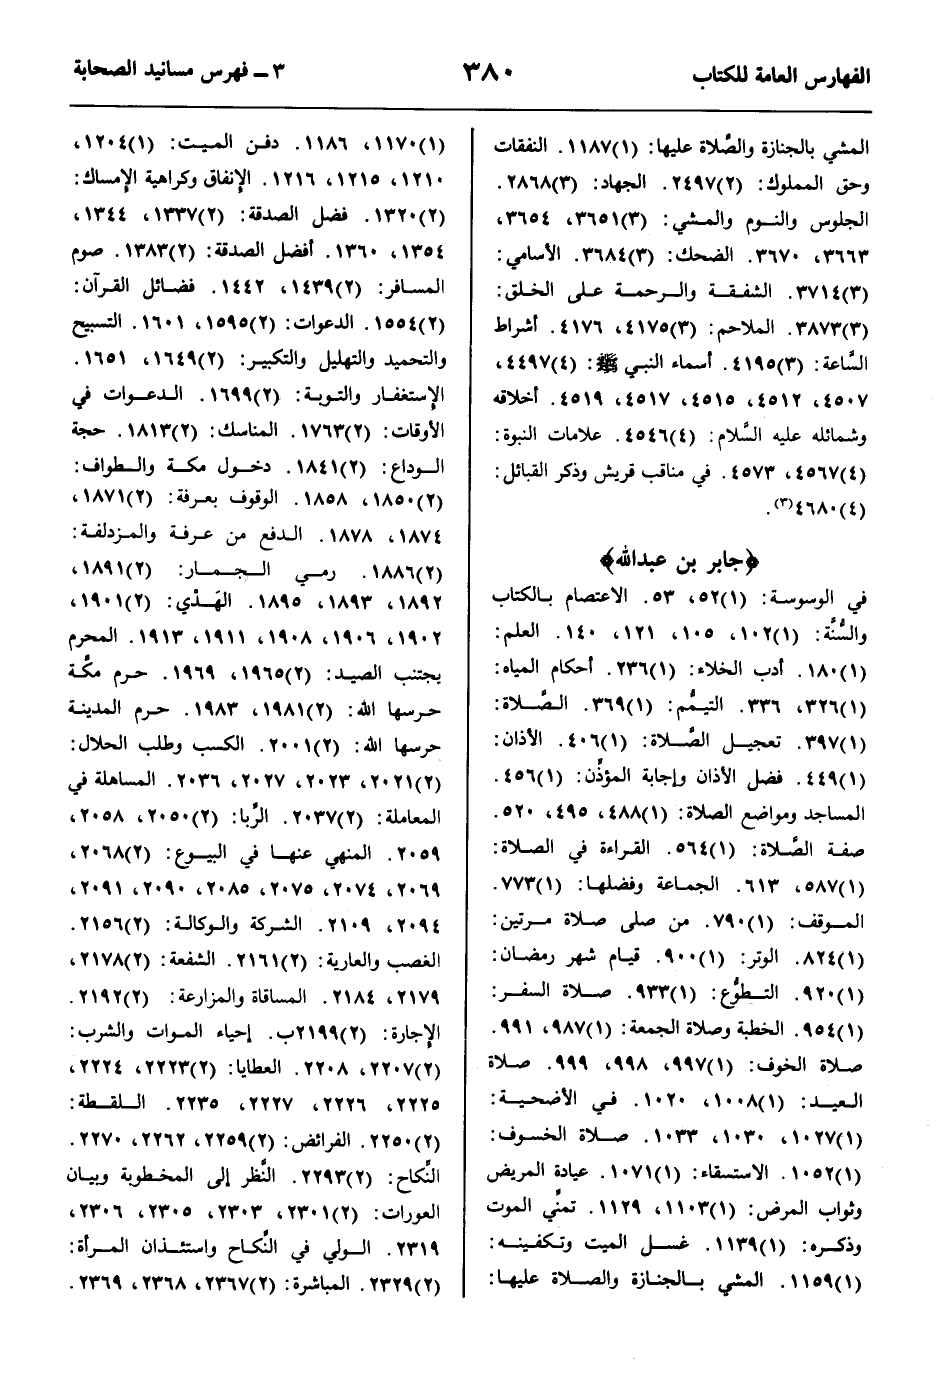 الفهارس العامة للكتاب
٣٨٠
٣ ــ فهرس مسانيد الصحابة
المشي بالجنازة والصَّلاة عليها: (١)١١٨٧. النفقات
وحق المملوك: (٢)٢٤٩٧. الجهاد: (٣)٢٨٦٨.
الجلوس والنوم والمشي: (٣)٣٦٥١، ٣٦٥٤،
٣٦٦٣، ٣٦٧٠. الضحك: (٣)٣٦٨٤. الأسامي:
(٣)٣٧١٤. الشفقة والرحمة على الخلق:
(٣)٣٨٧٣. الملاحم: (٣)٤١٧٥، ٤١٧٦. أشراط
السَّاعة: (٣)٤١٩٥. أسماء النبي ﷺ: (٤)٤٤٩٧،
٤٥٠٧، ٤٥١٢، ٤٥١٥، ٤٥١٧، ٤٥١٩. أخلاقه
وشمائله عليه السَّلام: (٤)٤٥٤٦. علامات النبوة:
(٤)٤٥٦٧، ٤٥٧٣. في مناقب قريش وذكر القبائل:
(٤)٤٦٨٠(٣).
﴿جابر بن عبدالله﴾
في الوسوسة: (١)٥٢، ٥٣. الاعتصام بالكتاب
والسُّنَّة: (١)١٠٢، ١٠٥، ١٢١، ١٤٠. العلم:
(١)١٨٠. أدب الخلاء: (١)٢٣٦. أحكام المياه:
(١)٣٢٦، ٣٣٦. التيمُّم: (١)٣٦٩. الصَّلاة:
(١)٣٩٧. تعجيل الصَّلاة: (١)٤٠٦. الأذان:
(١)٤٤٩. فضل الأذان وإجابة المؤذِّن: (١)٤٥٦.
المساجد ومواضع الصلاة: (١)٤٨٨، ٤٩٥، ٥٢٠.
صفة الصَّلاة: (١)٥٦٤. القراءة في الصلاة:
(١)٥٨٧، ٦١٣. الجماعة وفضلها: (١)٧٧٣.
الموقف: (١)٧٩٠. من صلى صلاة مرتين:
(١)٨٢٤. الوتر: (١)٩٠٠. قيام شهر رمضان:
(١)٩٢٠. التطوُّع: (١)٩٣٣. صلاة السفر:
(١)٩٥٤. الخطبة وصلاة الجمعة: (١)٩٨٧، ٩٩١.
صلاة الخوف: (١)٩٩٧، ٩٩٨، ٩٩٩. صلاة
العيد: (١)١٠٠٨، ١٠٢٠. في الأضحية:
(١)١٠٢٧، ١٠٣٠، ١٠٣٣. صلاة الخسوف:
(١)١٠٥٢. الاستسقاء: (١)١٠٧١. عيادة المريض
وثواب المرض: (١)١١٠٣، ١١٢٩. تمنِّي الموت
وذكره: (١)١١٣٩. غسل الميت وتكفينه:
(١)١١٥٩. المشي بالجنازة والصلاة عليها:
(١)١١٧٠، ١١٨٦. دفن الميت: (١)١٢٠٤،
١٢١٠، ١٢١٥، ١٢١٦. الإنفاق وكراهية الإمساك:
(٢)١٣٢٠. فضل الصدقة: (٢)١٣٣٧، ١٣٤٤،
١٣٥٤، ١٣٦٠. أفضل الصدقة: (٢)١٣٨٣. صوم
المسافر: (٢)١٤٣٩، ١٤٤٢. فضائل القرآن:
(٢)١٥٥٤. الدعوات: (٢)١٥٩٥، ١٦٠١. التسبيح
والتحميد والتهليل والتكبير: (٢)١٦٤٩، ١٦٥١.
الإستغفار والتوبة: (٢)١٦٩٩. الدعوات في
الأوقات: (٢)١٧٦٣. المناسك: (٢)١٨١٣. حجة
الوداع: (٢)١٨٤١. دخول مكة والطواف:
(٢)١٨٥٠، ١٨٥٨. الوقوف بعرفة: (٢)١٨٧١،
١٨٧٤، ١٨٧٨. الدفع من عرفة والمزدلفة:
(٢)١٨٨٦. رمي الجمار: (٢)١٨٩١،
١٨٩٢، ١٨٩٣، ١٨٩٥. الهَدْي: (٢)١٩٠١،
١٩٠٢، ١٩٠٦، ١٩٠٨، ١٩١١، ١٩١٣. المحرم
يجتنب الصيد: (٢)١٩٦٥، ١٩٦٩. حرم مكَّة
حرسها الله: (٢)١٩٨١، ١٩٨٣. حرم المدينة
حرسها الله: (٢)٢٠٠١. الكسب وطلب الحلال:
(٢)٢٠٢١، ٢٠٢٣، ٢٠٢٧، ٢٠٣٦. المساهلة في
المعاملة: (٢)٢٠٣٧. الرِّبا: (٢)٢٠٥٠، ٢٠٥٨،
٢٠٥٩. المنهي عنها في البيوع: (٢)٢٠٦٨،
٢٠٦٩، ٢٠٧٤، ٢٠٧٥، ٢٠٨٥، ٢٠٩٠، ٢٠٩١،
٢٠٩٤، ٢١٠٩. الشركة والوكالة: (٢)٢١٥٦.
الغصب والعارية: (٢)٢١٦١. الشفعة: (٢)٢١٧٨،
٢١٧٩، ٢١٨٤. المساقاة والمزارعة: (٢)٢١٩٢.
الإجارة: (٢)٢١٩٩ب. إحياء الموات والشرب:
(٢)٢٢٠٧، ٢٢٠٨. العطايا: (٢)٢٢٢٣، ٢٢٢٤،
٢٢٢٥، ٢٢٢٦، ٢٢٢٧، ٢٢٣٥. اللقطة:
(٢)٢٢٥٠. الفرائض: (٢)٢٢٥٩، ٢٢٦٢، ٢٢٧٠.
النِّكاح: (٢)٢٢٩٣. النَّظر إلى المخطوبة وبيان
العورات: (٢)٢٣٠١، ٢٣٠٣، ٢٣٠٥، ٢٣٠٦،
٢٣١٩. الولي في النِّكاح واستئذان المرأة:
(٢)٢٣٢٩. المباشرة: (٢)٢٣٦٧، ٢٣٦٨، ٢٣٦٩.